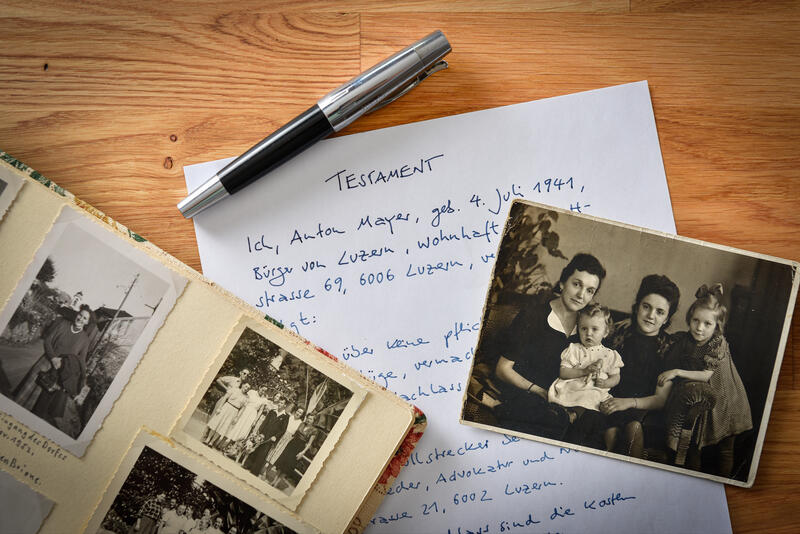 TESTAMENT
Ich, Anton Mayer, geb. 4. Juli 1941,
Bürger von Luzern, wohnhaft
strasse 69, 6006 Luzern, ve
gt:
über keine pflic
ge, vermac
achlass
llstrecker
eder, Advokatur und
asse 21, 6002 Luzern.
lass sind die Kosten
ngang des Dorfes
1952.